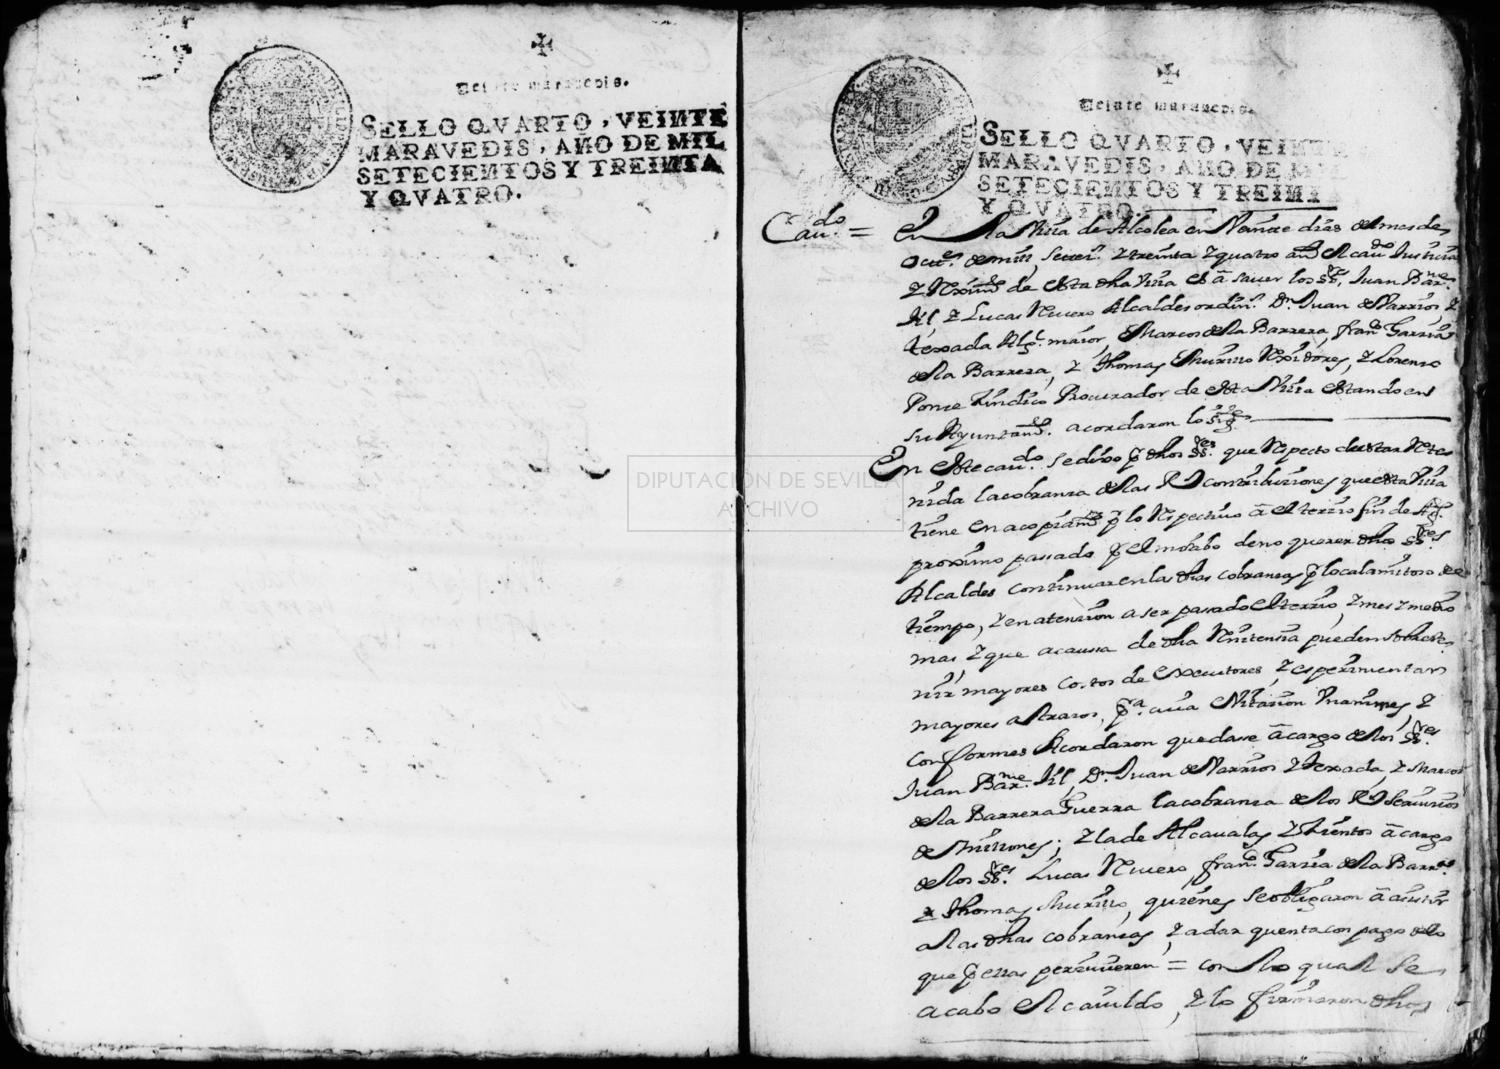 Veinte maravedis.
SELLO QVARTO, VEINTE
MARAVEDIS, AÑO DE MIL
SETECIENTOS Y TREINTA
Y QVATRO.
Veinte maravedis.
SELLO QVARTO, VEINTE
MARAVEDIS, AÑO DE MIL
SETECIENTOS Y TREINTA
Y QVATRO.
Caudo. = En la Villa de Alcolea en Veinte dias del mes de
Octe. de mill, setecs. y treinta y quatro as. el cauo. Justicia
y Reximto. de esta dha Villa es a sauer los SSs. Juan Barme.
Gil, y Lucas Riuero Alcaldes ordins. Dn. Juan de Barrios y
texada Algl. maior, Marcos de la Barrera, franco. Garsia
de la Barrera, y Thomas Murillo Rexidores, y Lorenso
Ponse Sindico Procurador de esta Villa estando en
su Ayuntamto. acordaron lo sigte.
En este caudo. se dixo pr. dhos SSres. que Respecto de estar Rete
nida la cobransa de las Rs contribusiones que esta Villa
tiene en acopiamto. pr lo Respectivo a el tersio fin de Agto.
proximo passado pr el motibo de no querer dhos SSres
Alcaldes continuar en las dhas cobransas pr lo calamitoso de el
tiempo, y en atension a ser pasado el tersio, y mes y medio
mas, y que a causa de dha Retensia pueden sobreve
nir mayores costos de executores, y esperimentar
mayores atrasos, pa. cuia evitasion Vnanimes, y
conformes Acordaron quedase a cargo de los SSres.
Juan Barme. Gil, Dn. Juan de Barrios y texada, y Marcos
de la Barrera Guerra la cobransa de los Rs Seruisios
de Millones; y la de Alcaualas y Sientos a cargo
de los SSres. Lucas Riuero, franco. Garsia de la Barra.
y Thomas Murillo, quienes se obligaron a asistir
a las dhas cobransas, y a dar quenta con pago de lo
que pr ellas perciuieren = con lo qual se
acabo el cauildo, y lo firmaron dhos
DIPUTACIÓN DE SEVILLA
ARCHIVO